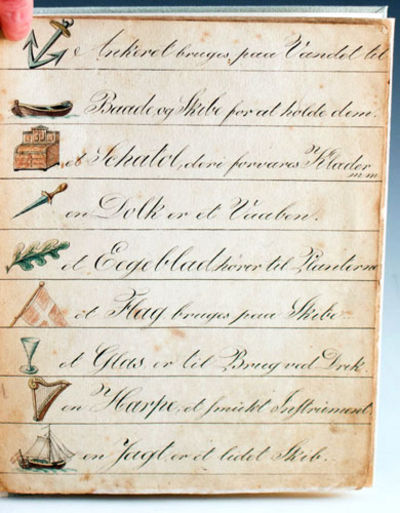 Ankeret bruges, paa Vandet til
Baade, og Skibe for at holde dem.
et Schatol, deri forvares Klæder
m.m.
en Dolk er et Vaaben.
et Eegeblad hører til Planterne
et Flag bruges paa Skibe.
et Glas, er til Brug ved Drik.
en Harpe, et smukt Instrument
en Jagt er et lidet Skib.